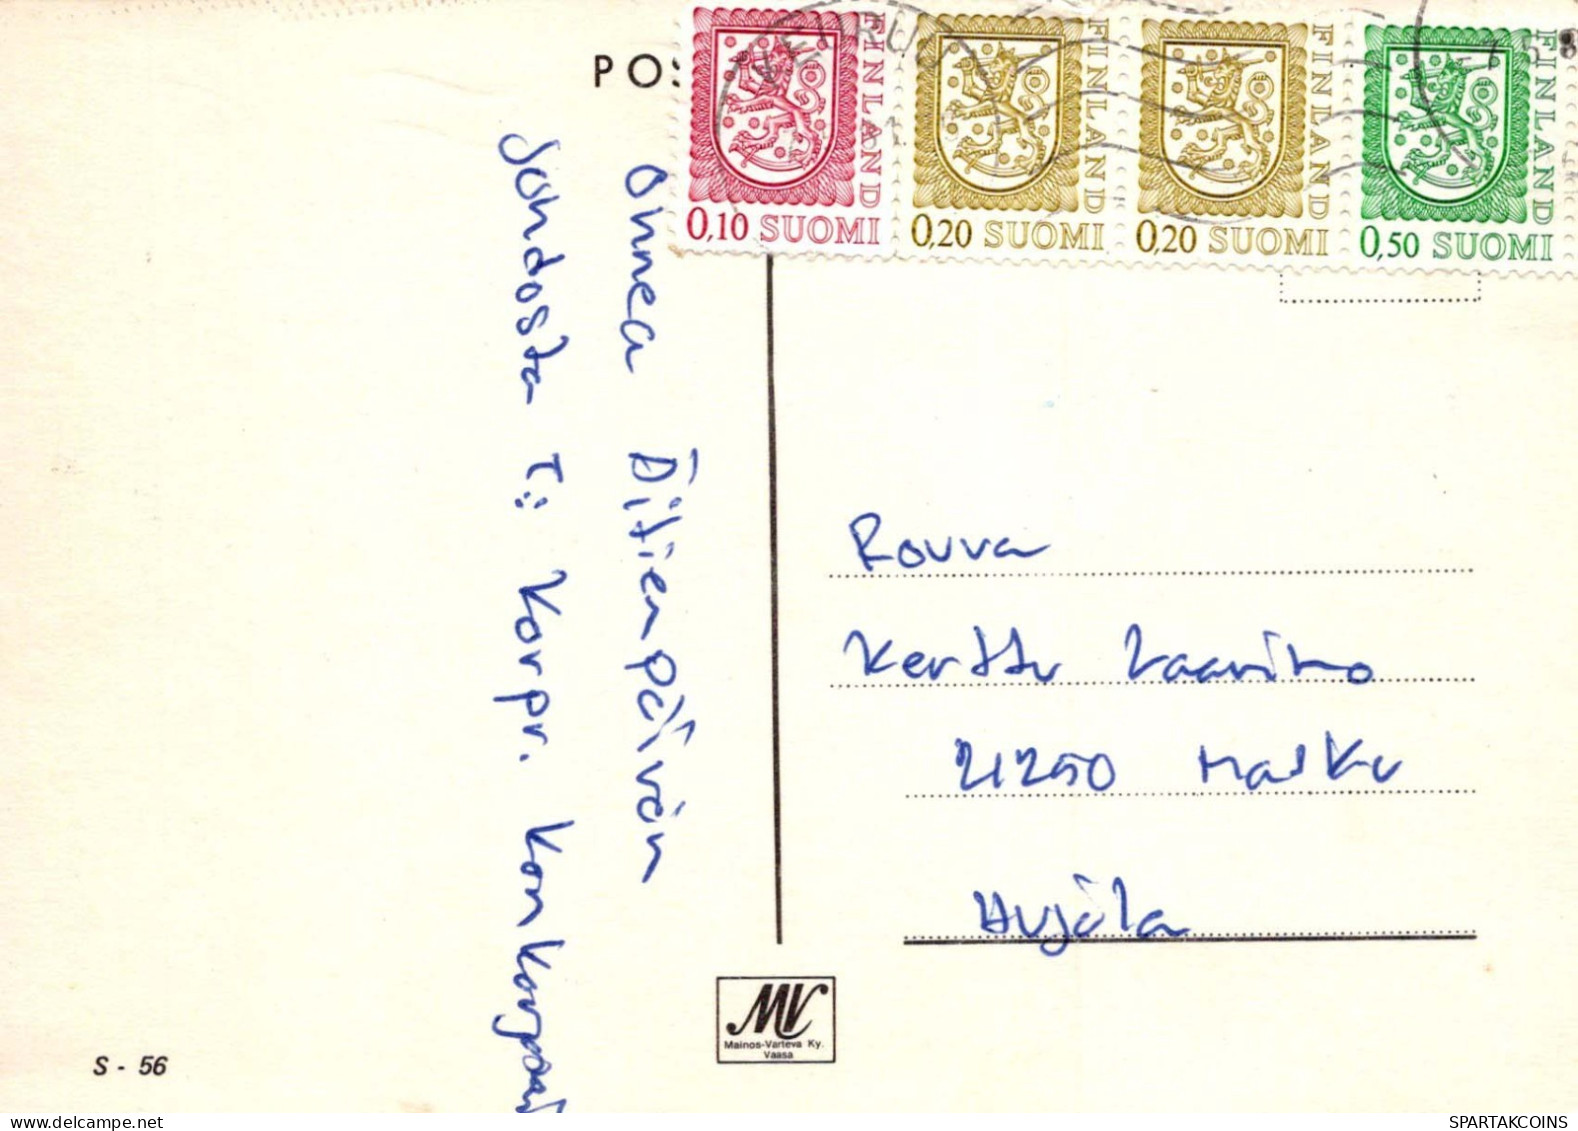 POS
FINLAND
0,10 SUOMI
FINLAND
0,20 SUOMI
FINLAND
0,20 SUOMI
FINLAND
0,50 SUOMI
Onnea Äitienpäivän
Johdosta T: Korpr.
Rouva
Kerttu
21250 Masku
MV
Mainos-Varteva Ky.
Vaasa
S - 56
WWW.DELCAMPE.NET
SPARTAKCOINS